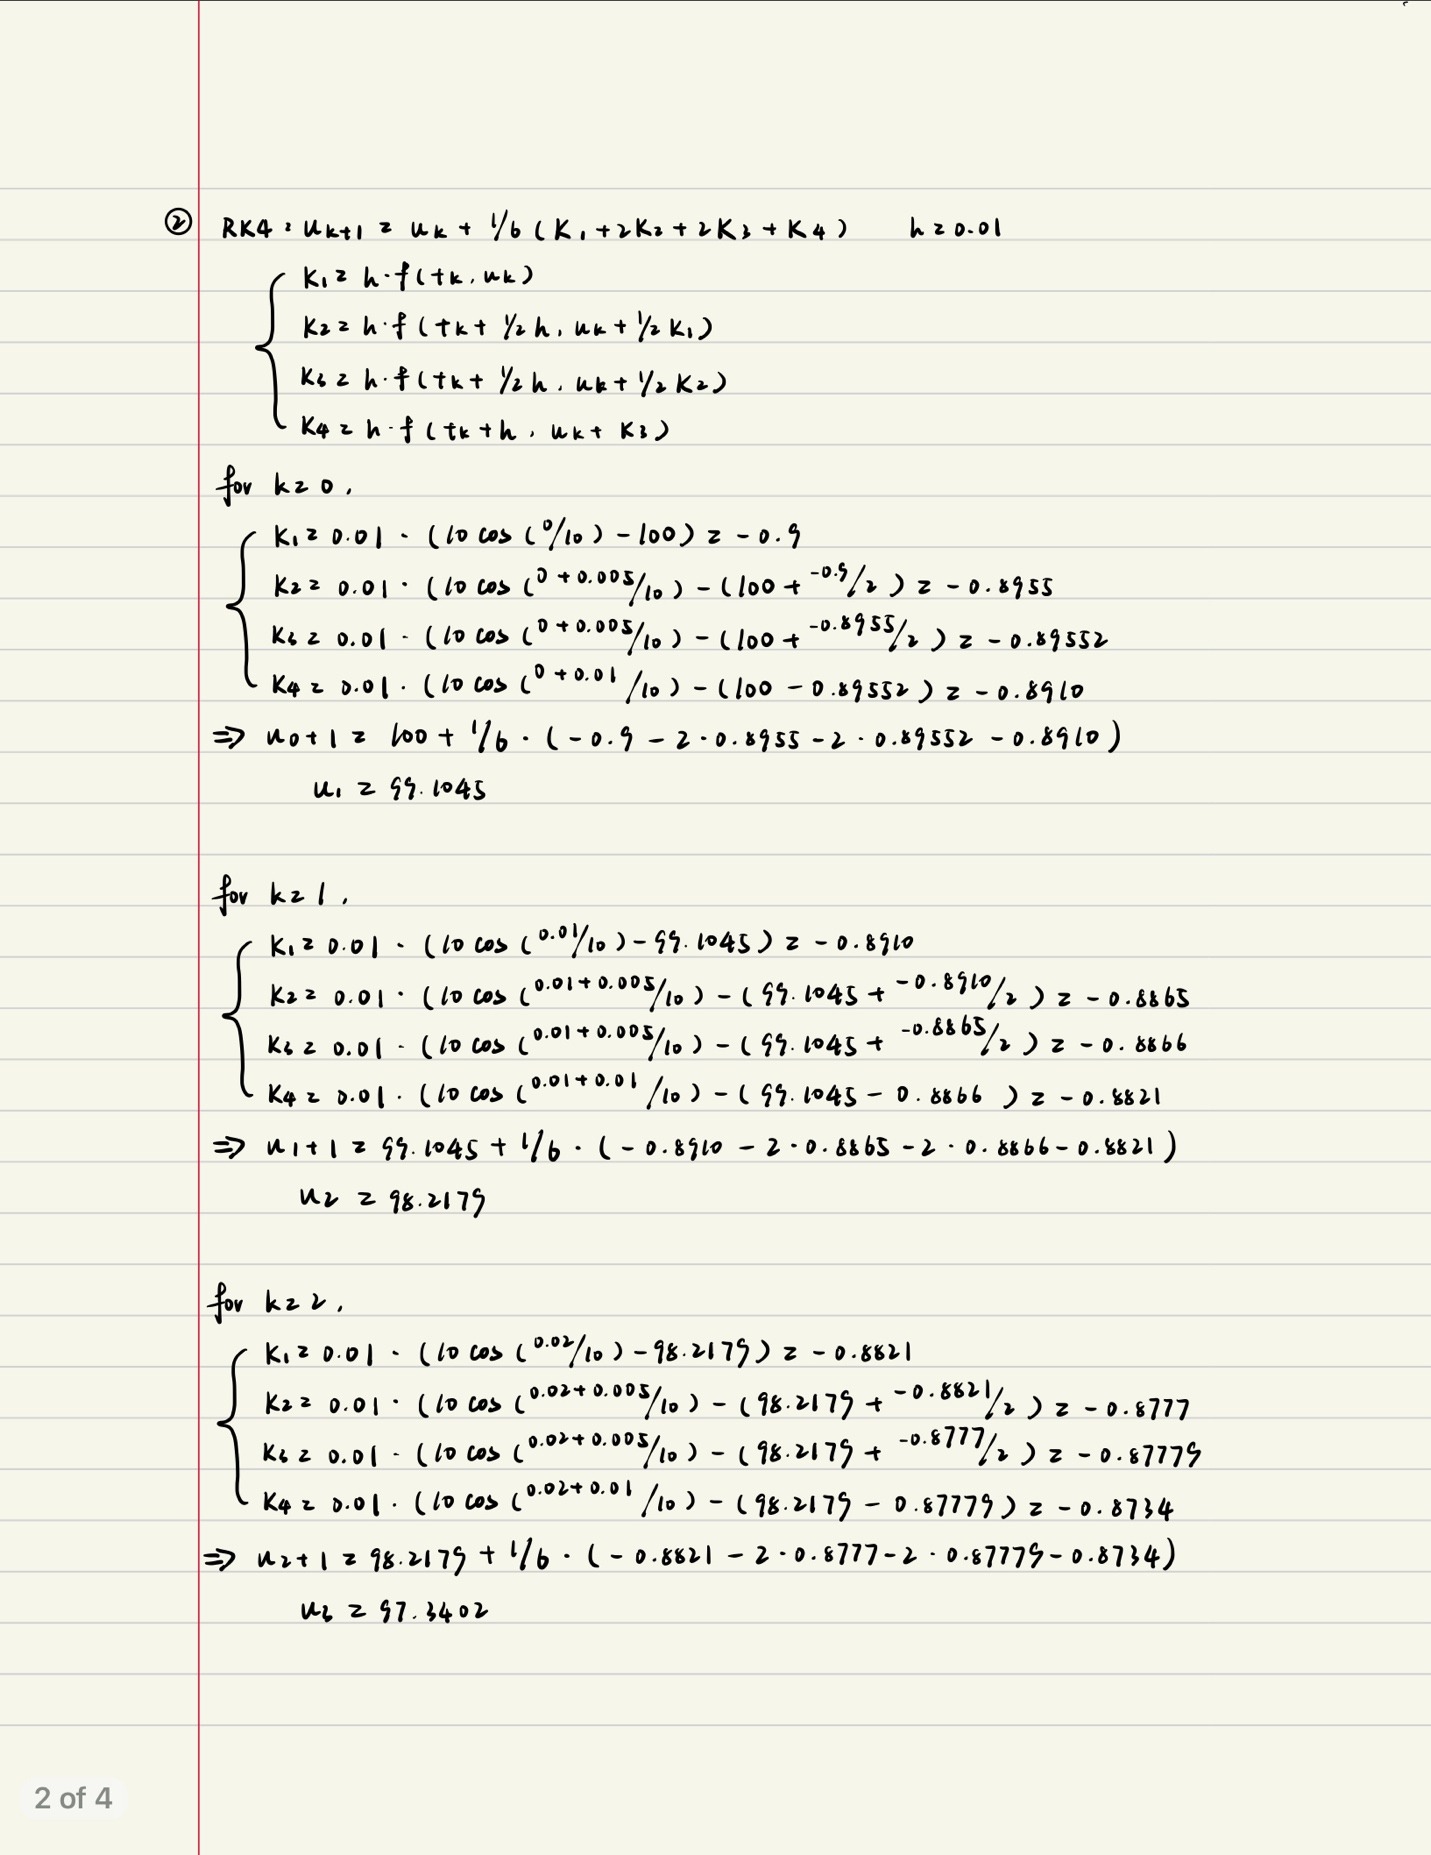 ② RK4: uk+1 = uk + 1/6 (K1 + 2K2 + 2K3 + K4) h = 0.01
K1 = h·f(tk, uk)
K2 = h·f(tk + 1/2 h, uk + 1/2 K1)
K3 = h·f(tk + 1/2 h, uk + 1/2 K2)
K4 = h·f(tk + h, uk + K3)
for k = 0,
K1 = 0.01 · (10 cos (0/10) - 100) = -0.9
K2 = 0.01 · (10 cos (0 + 0.005/10) - (100 + -0.9/2) = -0.8955
K3 = 0.01 · (10 cos (0 + 0.005/10) - (100 + -0.8955/2) = -0.89552
K4 = 0.01 · (10 cos (0 + 0.01/10) - (100 - 0.89552) = -0.8910
⇒ u0+1 = 100 + 1/6 · (-0.9 - 2·0.8955 - 2·0.89552 - 0.8910)
u1 = 99.1045
for k = 1,
K1 = 0.01 · (10 cos (0.01/10) - 99.1045) = -0.8910
K2 = 0.01 · (10 cos (0.01 + 0.005/10) - (99.1045 + -0.8910/2) = -0.8865
K3 = 0.01 · (10 cos (0.01 + 0.005/10) - (99.1045 + -0.8865/2) = -0.8866
K4 = 0.01 · (10 cos (0.01 + 0.01/10) - (99.1045 - 0.8866) = -0.8821
⇒ u1+1 = 99.1045 + 1/6 · (-0.8910 - 2·0.8865 - 2·0.8866 - 0.8821)
u2 = 98.2179
for k = 2,
K1 = 0.01 · (10 cos (0.02/10) - 98.2179) = -0.8821
K2 = 0.01 · (10 cos (0.02 + 0.005/10) - (98.2179 + -0.8821/2) = -0.8777
K3 = 0.01 · (10 cos (0.02 + 0.005/10) - (98.2179 + -0.8777/2) = -0.87779
K4 = 0.01 · (10 cos (0.02 + 0.01/10) - (98.2179 - 0.87779) = -0.8734
⇒ u2+1 = 98.2179 + 1/6 · (-0.8821 - 2·0.8777 - 2·0.87779 - 0.8734)
u3 = 97.3402
2 of 4